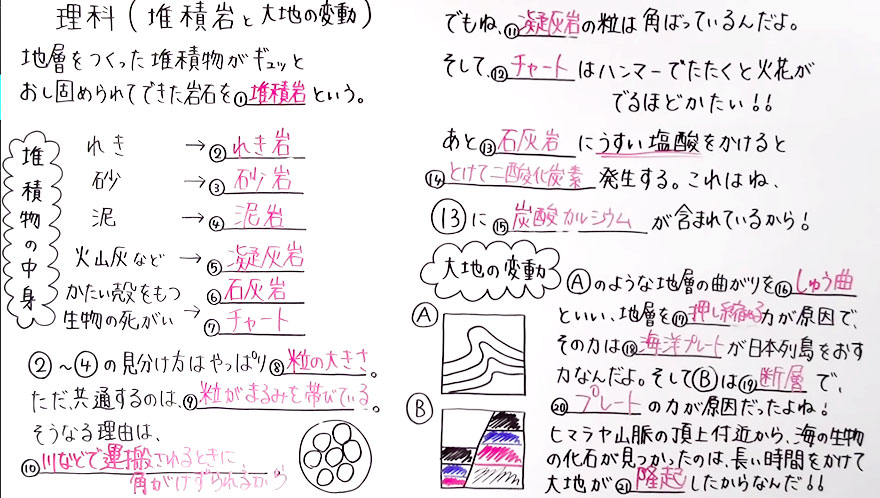 理科(堆積岩と大地の変動)
地層をつくった堆積物がギュッと
おし固められてできた岩石を①堆積岩という。
堆積物の中身
れき→②れき岩
砂→③砂岩
泥→④泥岩
火山灰など→⑤凝灰岩
かたい殻をもつ
生物の死がい→⑥石灰岩
⑦チャート
②~④の見分け方はやっぱり⑧粒の大きさ。
ただ、共通するのは、⑨粒がまるみを帯びている。
そうなる理由は、
⑩川などで運搬されるときに
角がけずられるから
でもね、⑪凝灰岩の粒は角ばっているんだよ。
そして、⑫チャートはハンマーでたたくと火花が
でるほどかたい!!
あと⑬石灰岩にうすい塩酸をかけると
⑭とけて二酸化炭素発生する。これはね、
⑬に⑮炭酸カルシウムが含まれているから!
大地の変動
Ⓐ
Ⓑ
Ⓐのような地層の曲がりを⑯しゅう曲
といい、地層を⑰押し縮める力が原因で、
その力は⑱海洋プレートが日本列島をおす
力なんだよ。そしてⒷは⑲断層で、
⑳プレートの力が原因だったよね!
ヒマラヤ山脈の頂上付近から、海の生物
の化石が見つかったのは、長い時間をかけて
大地が㉑隆起したからなんだ!!